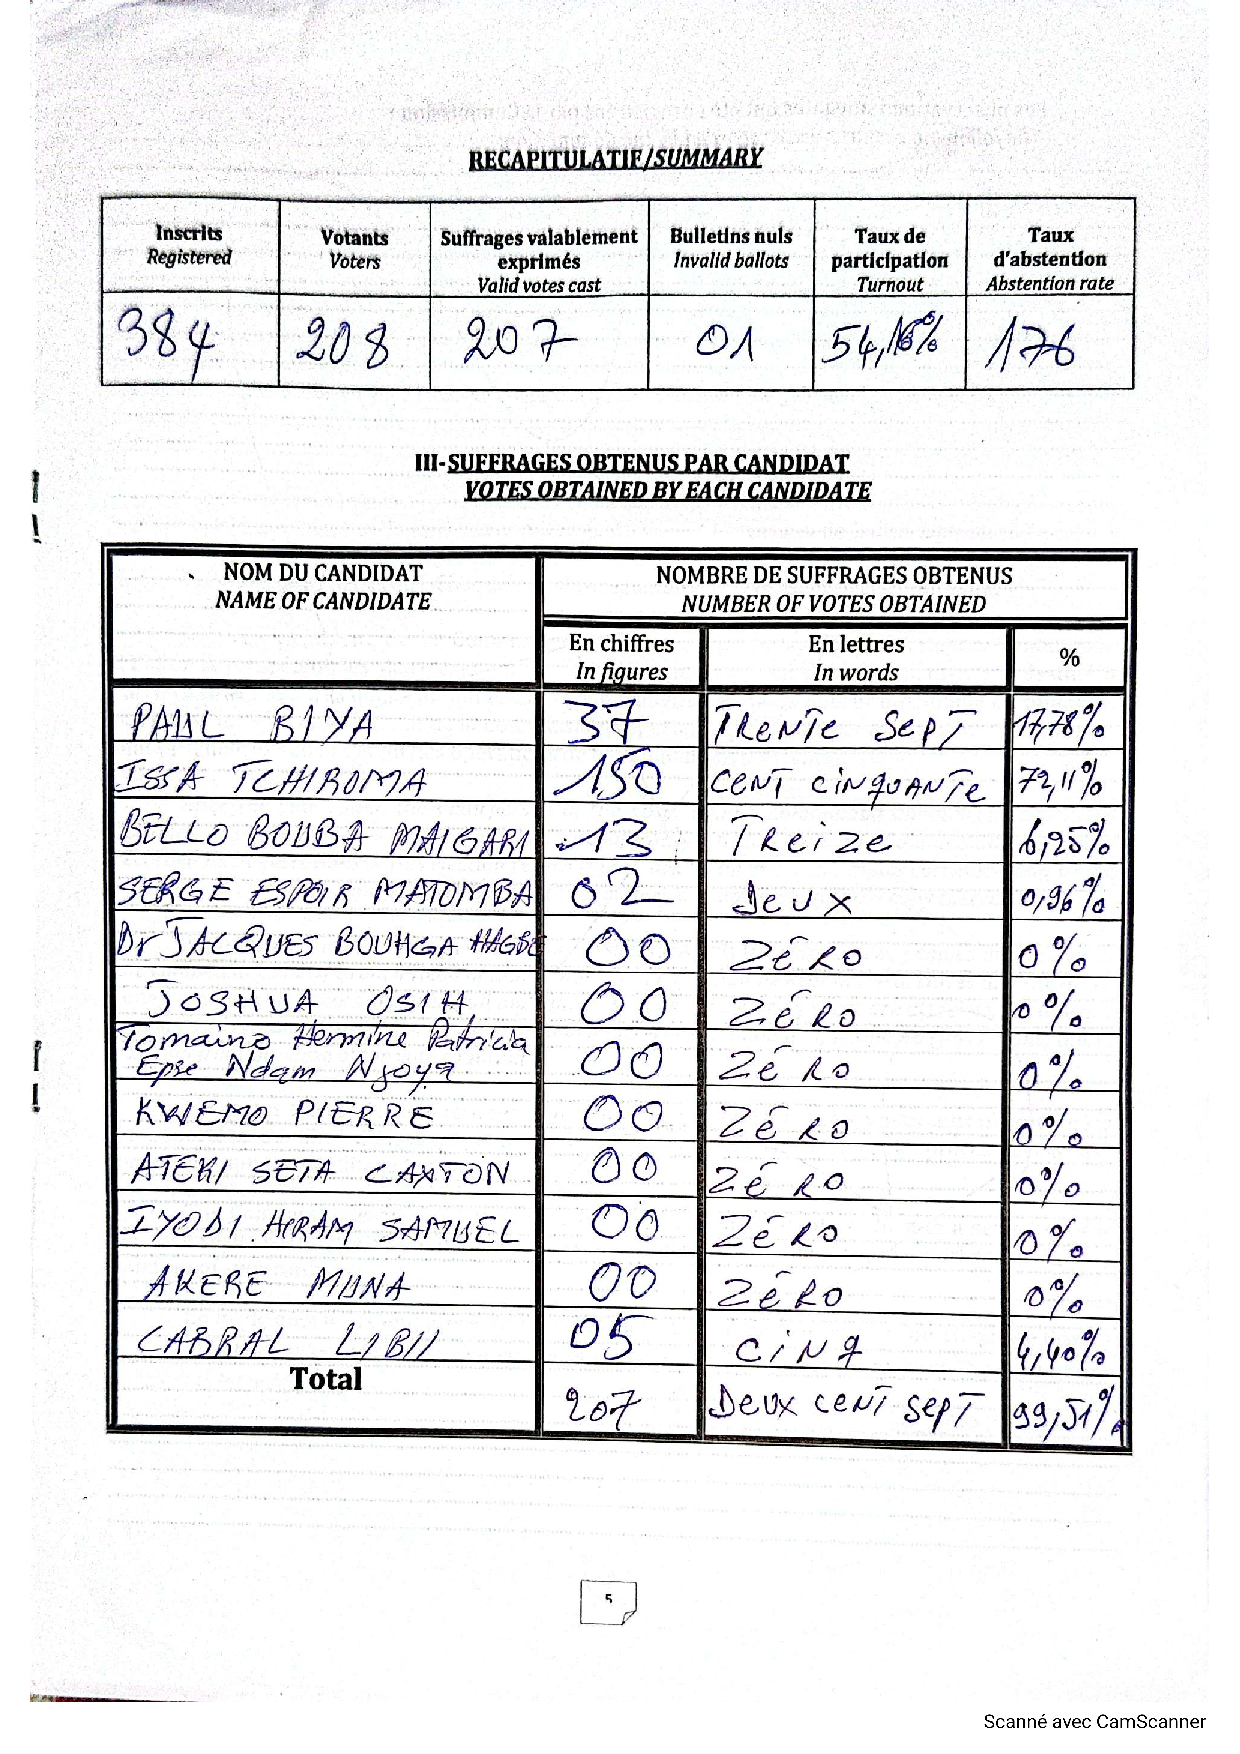 RECAPITULATIF/SUMMARY
Inscrits Registered | Votants Voters | Suffrages valablement exprimés Valid votes cast | Bulletins nuls Invalid ballots | Taux de participation Turnout | Taux d'abstention Abstention rate
384 | 208 | 207 | 01 | 54,16% | 176
III-SUFFRAGES OBTENUS PAR CANDIDAT
VOTES OBTAINED BY EACH CANDIDATE
NOM DU CANDIDAT NAME OF CANDIDATE | NOMBRE DE SUFFRAGES OBTENUS NUMBER OF VOTES OBTAINED
En chiffres In figures | En lettres In words | %
PAUL BIYA | 37 | TRENTE SEPT | 17,78%
ISSA TCHIROMA | 150 | CENT CINQUANTE | 72,11%
BELLO BOUBA MAIGARI | 13 | TReize | 6,25%
SERGE ESPOIR MATOMBA | 02 | Deux | 0,96%
Dr JACQUES BOUHGA | 00 | ZéRO | 0%
JOSHUA OSIH | 00 | ZéRO | 0%
Tomaino Hermine Patricia Epse Ndam Njoya | 00 | ZéRO | 0%
KWEMO PIERRE | 00 | ZéRO | 0%
ATEKI SETA CAXTON | 00 | ZéRO | 0%
IYODI HIRAM SAMUEL | 00 | ZéRO | 0%
AKERE MUNA | 00 | ZéRO | 0%
CABRAL LIBII | 05 | CiNq | 4,40%
Total | 207 | Deux CENT SEPT | 99,51%
5
Scanné avec CamScanner